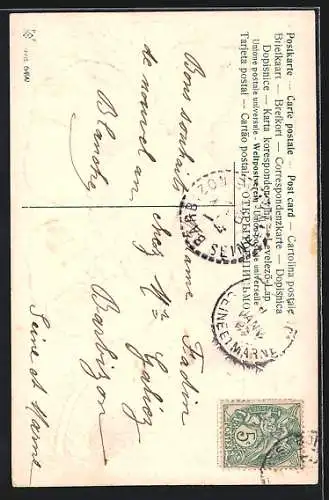 Postkarte — Carte postale — Post card — Cartolina postale
Briefkaart — Brefkort — Correspondenzkarte — Dopisnica
Dopisnice — Karta korespondencyjna — Levelező-Lap
Unione postale universale — Weltpostverein — Union postale universelle
Tarjeta postal — Cartão postal — ОТКРЫТОЕ ПИСЬМО
Bons souhaits
de nouvel an
Blanche
BARBIZON
SEINE
SEINE ET MARNE
Madame
chez Mr
Barbizon
Seine et Marne
5